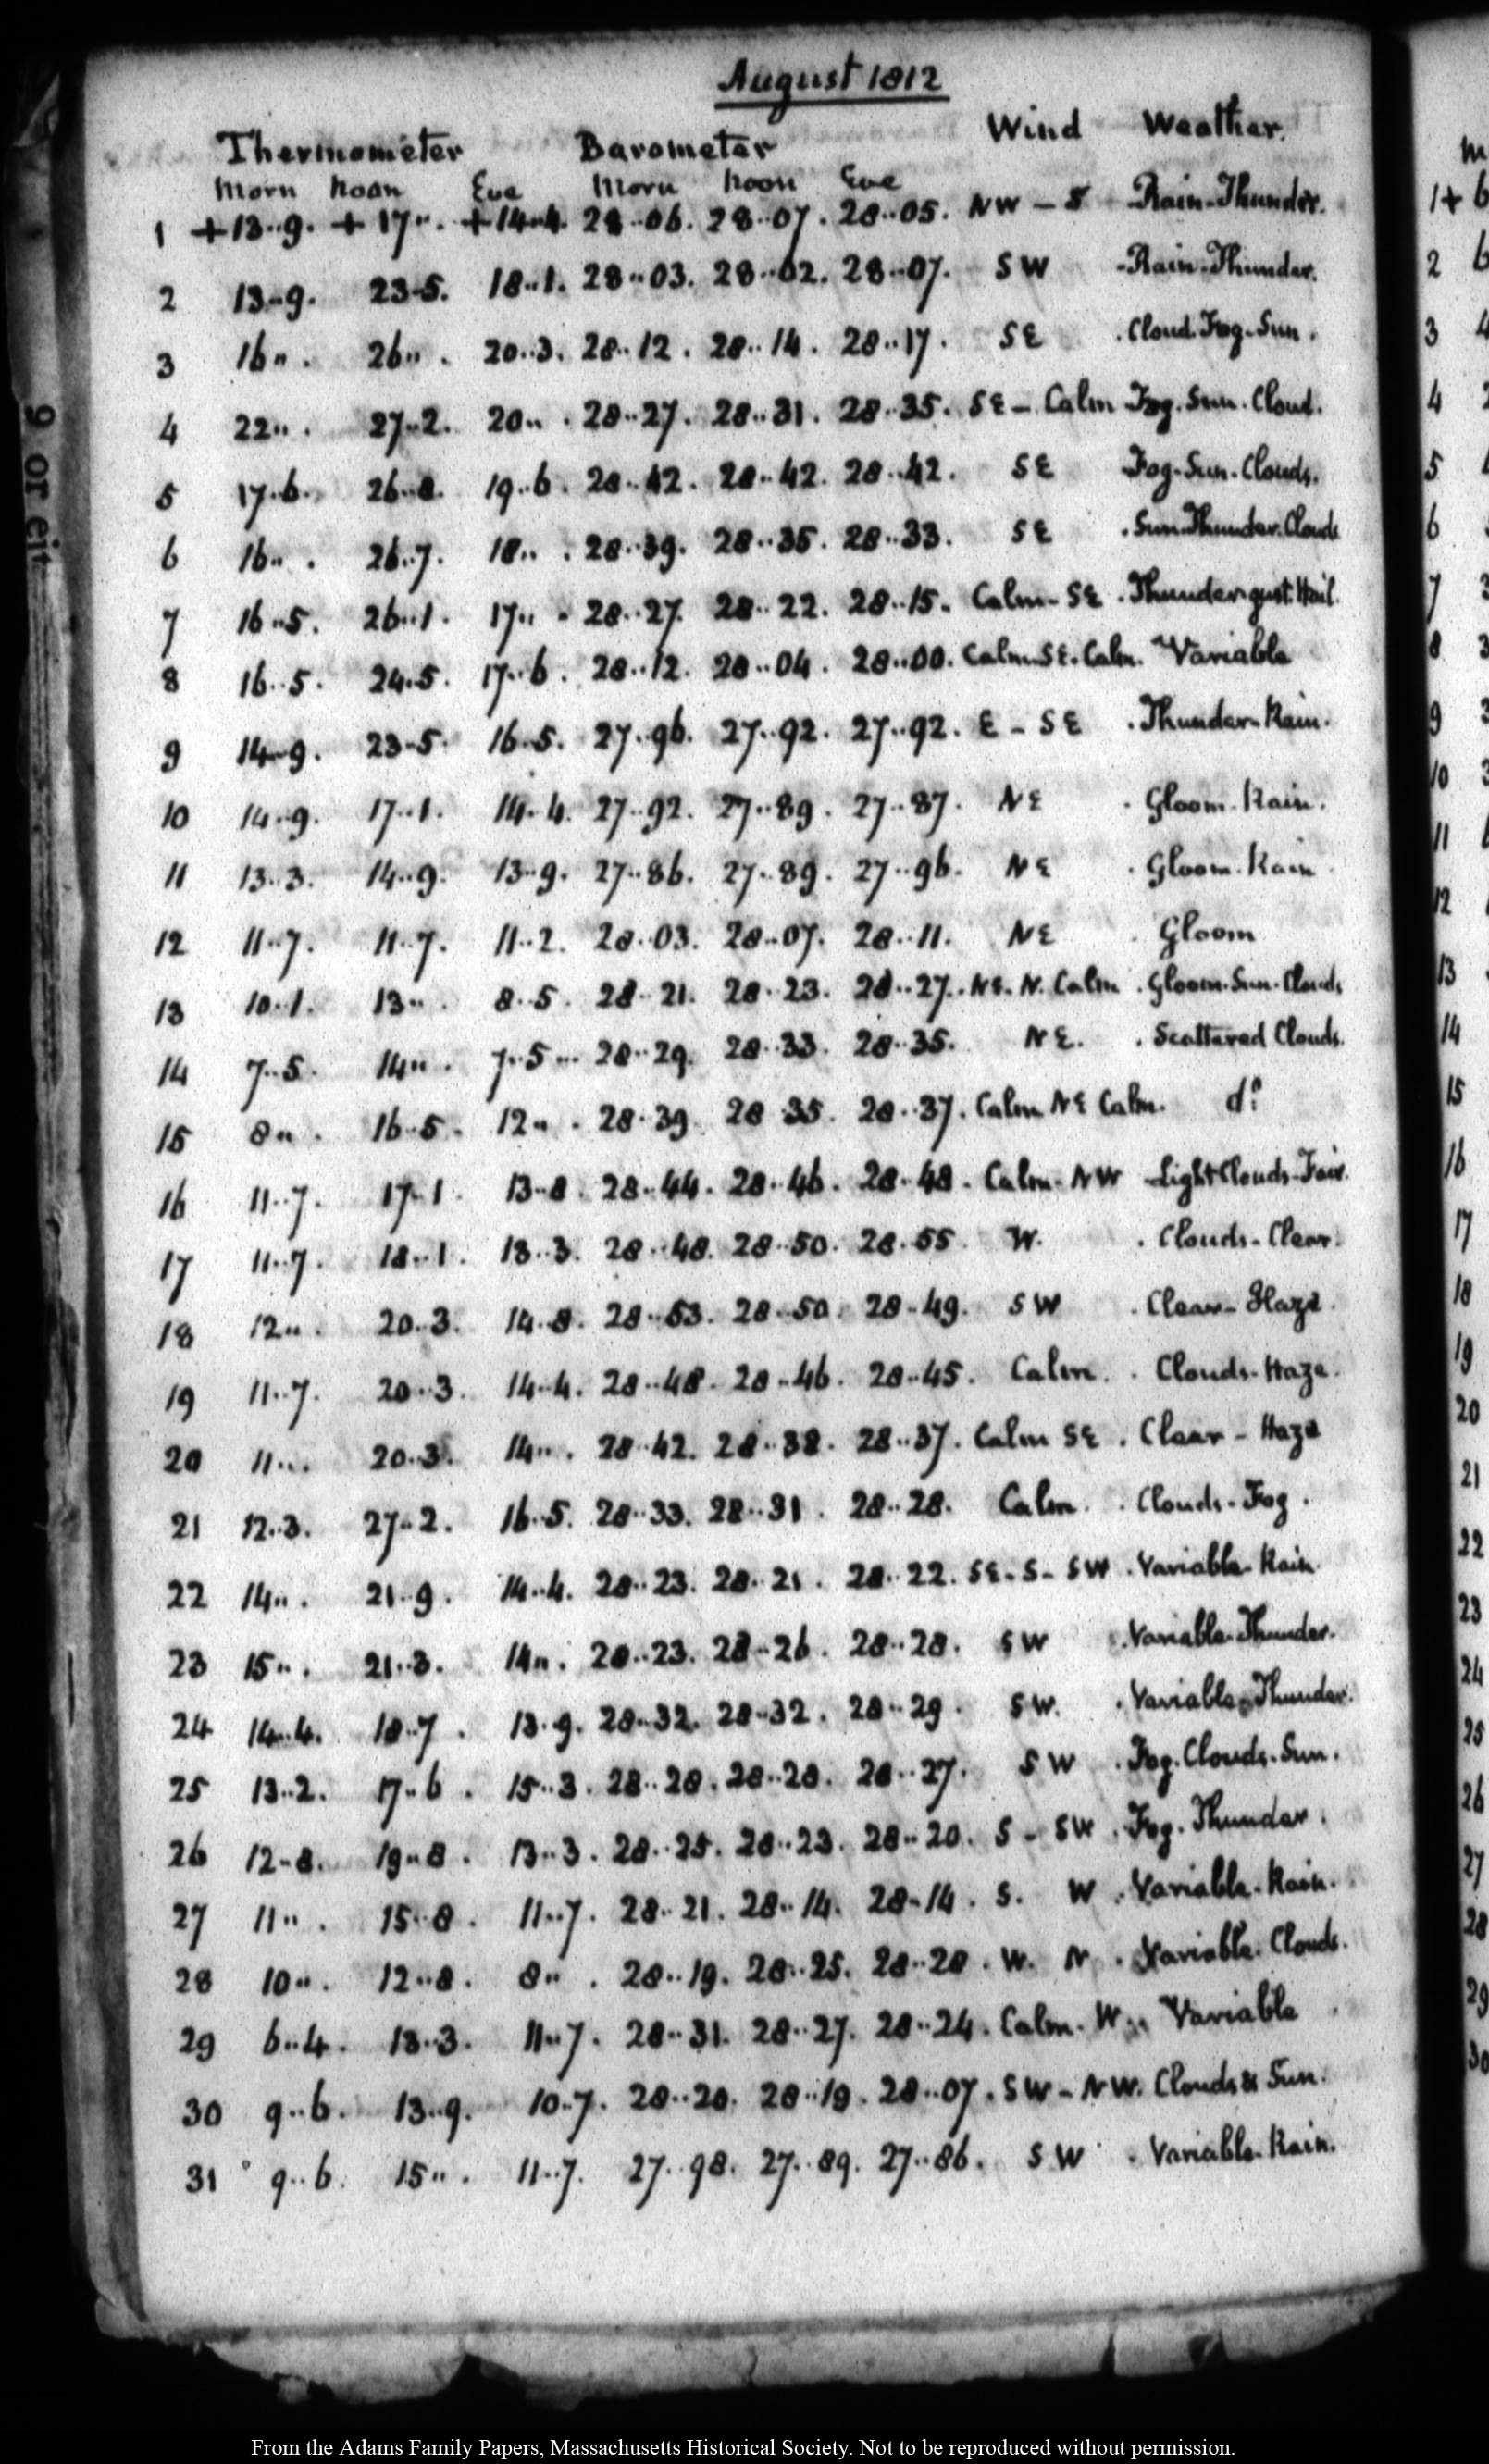 August 1812
Thermometer Barometer Wind Weather.
Morn Noon Eve Morn Noon Eve
1 +13..9. +17... +14..4. 28..06. 28..07. 28..05. NW - S Rain-Thunder.
2 13..9. 23..5. 18..1. 28..03. 28..02. 28..07. SW Rain-Thunder.
3 16.. . 26.. . 20..3. 28..12. 28..14. 28..17. SE Cloud.Fog.Sun.
4 22.. . 27..2. 20.. . 28..27. 28..31. 28..35. SE - Calm Fog.Sun.Cloud.
5 17..6. 26..8. 19..6. 28..42. 28..42. 28..42. SE Fog-Sun-Clouds.
6 16.. . 26..7. 18.. . 28..39. 28..35. 28..33. SE Sun.Thunder.Clouds
7 16..5. 26..1. 17.. . 28..27. 28..22. 28..15. Calm - SE Thundergust.Hail.
8 16..5. 24..5. 17..6. 28..12. 28..04. 28..00. Calm.SE.Calm. Variable
9 14..9. 23..5. 16..5. 27..96. 27..92. 27..92. E - SE Thunder-Rain.
10 14..9. 17..1. 14..4. 27..92. 27..89. 27..87. NE Gloom.Rain.
11 13..3. 14..9. 13..9. 27..86. 27..89. 27..96. NE Gloom.Rain
12 11..7. 11..7. 11..2. 28..03. 28..07. 28..11. NE Gloom
13 10..1. 13.. . 8..5. 28..21. 28..23. 28..27. NE. N. Calm Gloom.Sun.Clouds
14 7..5. 14.. . 7..5 28..29. 28..33. 28..35. NE. Scattered Clouds.
15 8.. . 16..5. 12.. . 28..39. 28 35. 28..37. Calm NE Calm. do
16 11..7. 17..1. 13..8. 28..44. 28..46. 28..48. Calm - NW Light Clouds-Fair.
17 11..7. 18..1. 13..3. 28..48. 28..50. 28..55. W. Clouds-Clear.
18 12.. . 20..3. 14..8. 28..53. 28..50. 28..49. SW Clear-Haze.
19 11..7. 20..3. 14..4. 28..48. 28..46. 28..45. Calm. Clouds-Haze.
20 11... 20..3. 14.. . 28..42. 28..38. 28..37. Calm SE Clear - Haze
21 12..3. 27..2. 16..5. 28..33. 28..31. 28..28. Calm. Clouds-Fog.
22 14.. . 21..9. 14..4. 28..23. 28..21. 28..22. SE-S-SW Variable-Rain.
23 15.. . 21..3. 14.. . 28..23. 28..26. 28..28. SW Variable-Thunder.
24 14..4. 18..7. 13..9. 28..32. 28..32. 28..29. SW. Variable-Thunder.
25 13..2. 17..6. 15..3. 28..28. 28..28. 28..27. SW Fog.Clouds.Sun.
26 12..8. 19..8. 13..3. 28..25. 28..23. 28..20. S - SW Fog.Thunder.
27 11.. . 15..8. 11..7. 28..21. 28..14. 28..14. S. W Variable-Rain.
28 10.. . 12..8. 8.. . 28..19. 28..25. 28..28. W. N. Variable.Clouds.
29 6..4. 13..3. 11..7. 28..31. 28..27. 28..24. Calm. W. Variable
30 9..6. 13..9. 10..7. 28..20. 28..19. 28..07. SW - NW. Clouds & Sun.
31 9..6. 15.. . 11..7. 27..98. 27..89. 27..86. SW Variable.Rain.
From the Adams Family Papers, Massachusetts Historical Society. Not to be reproduced without permission.